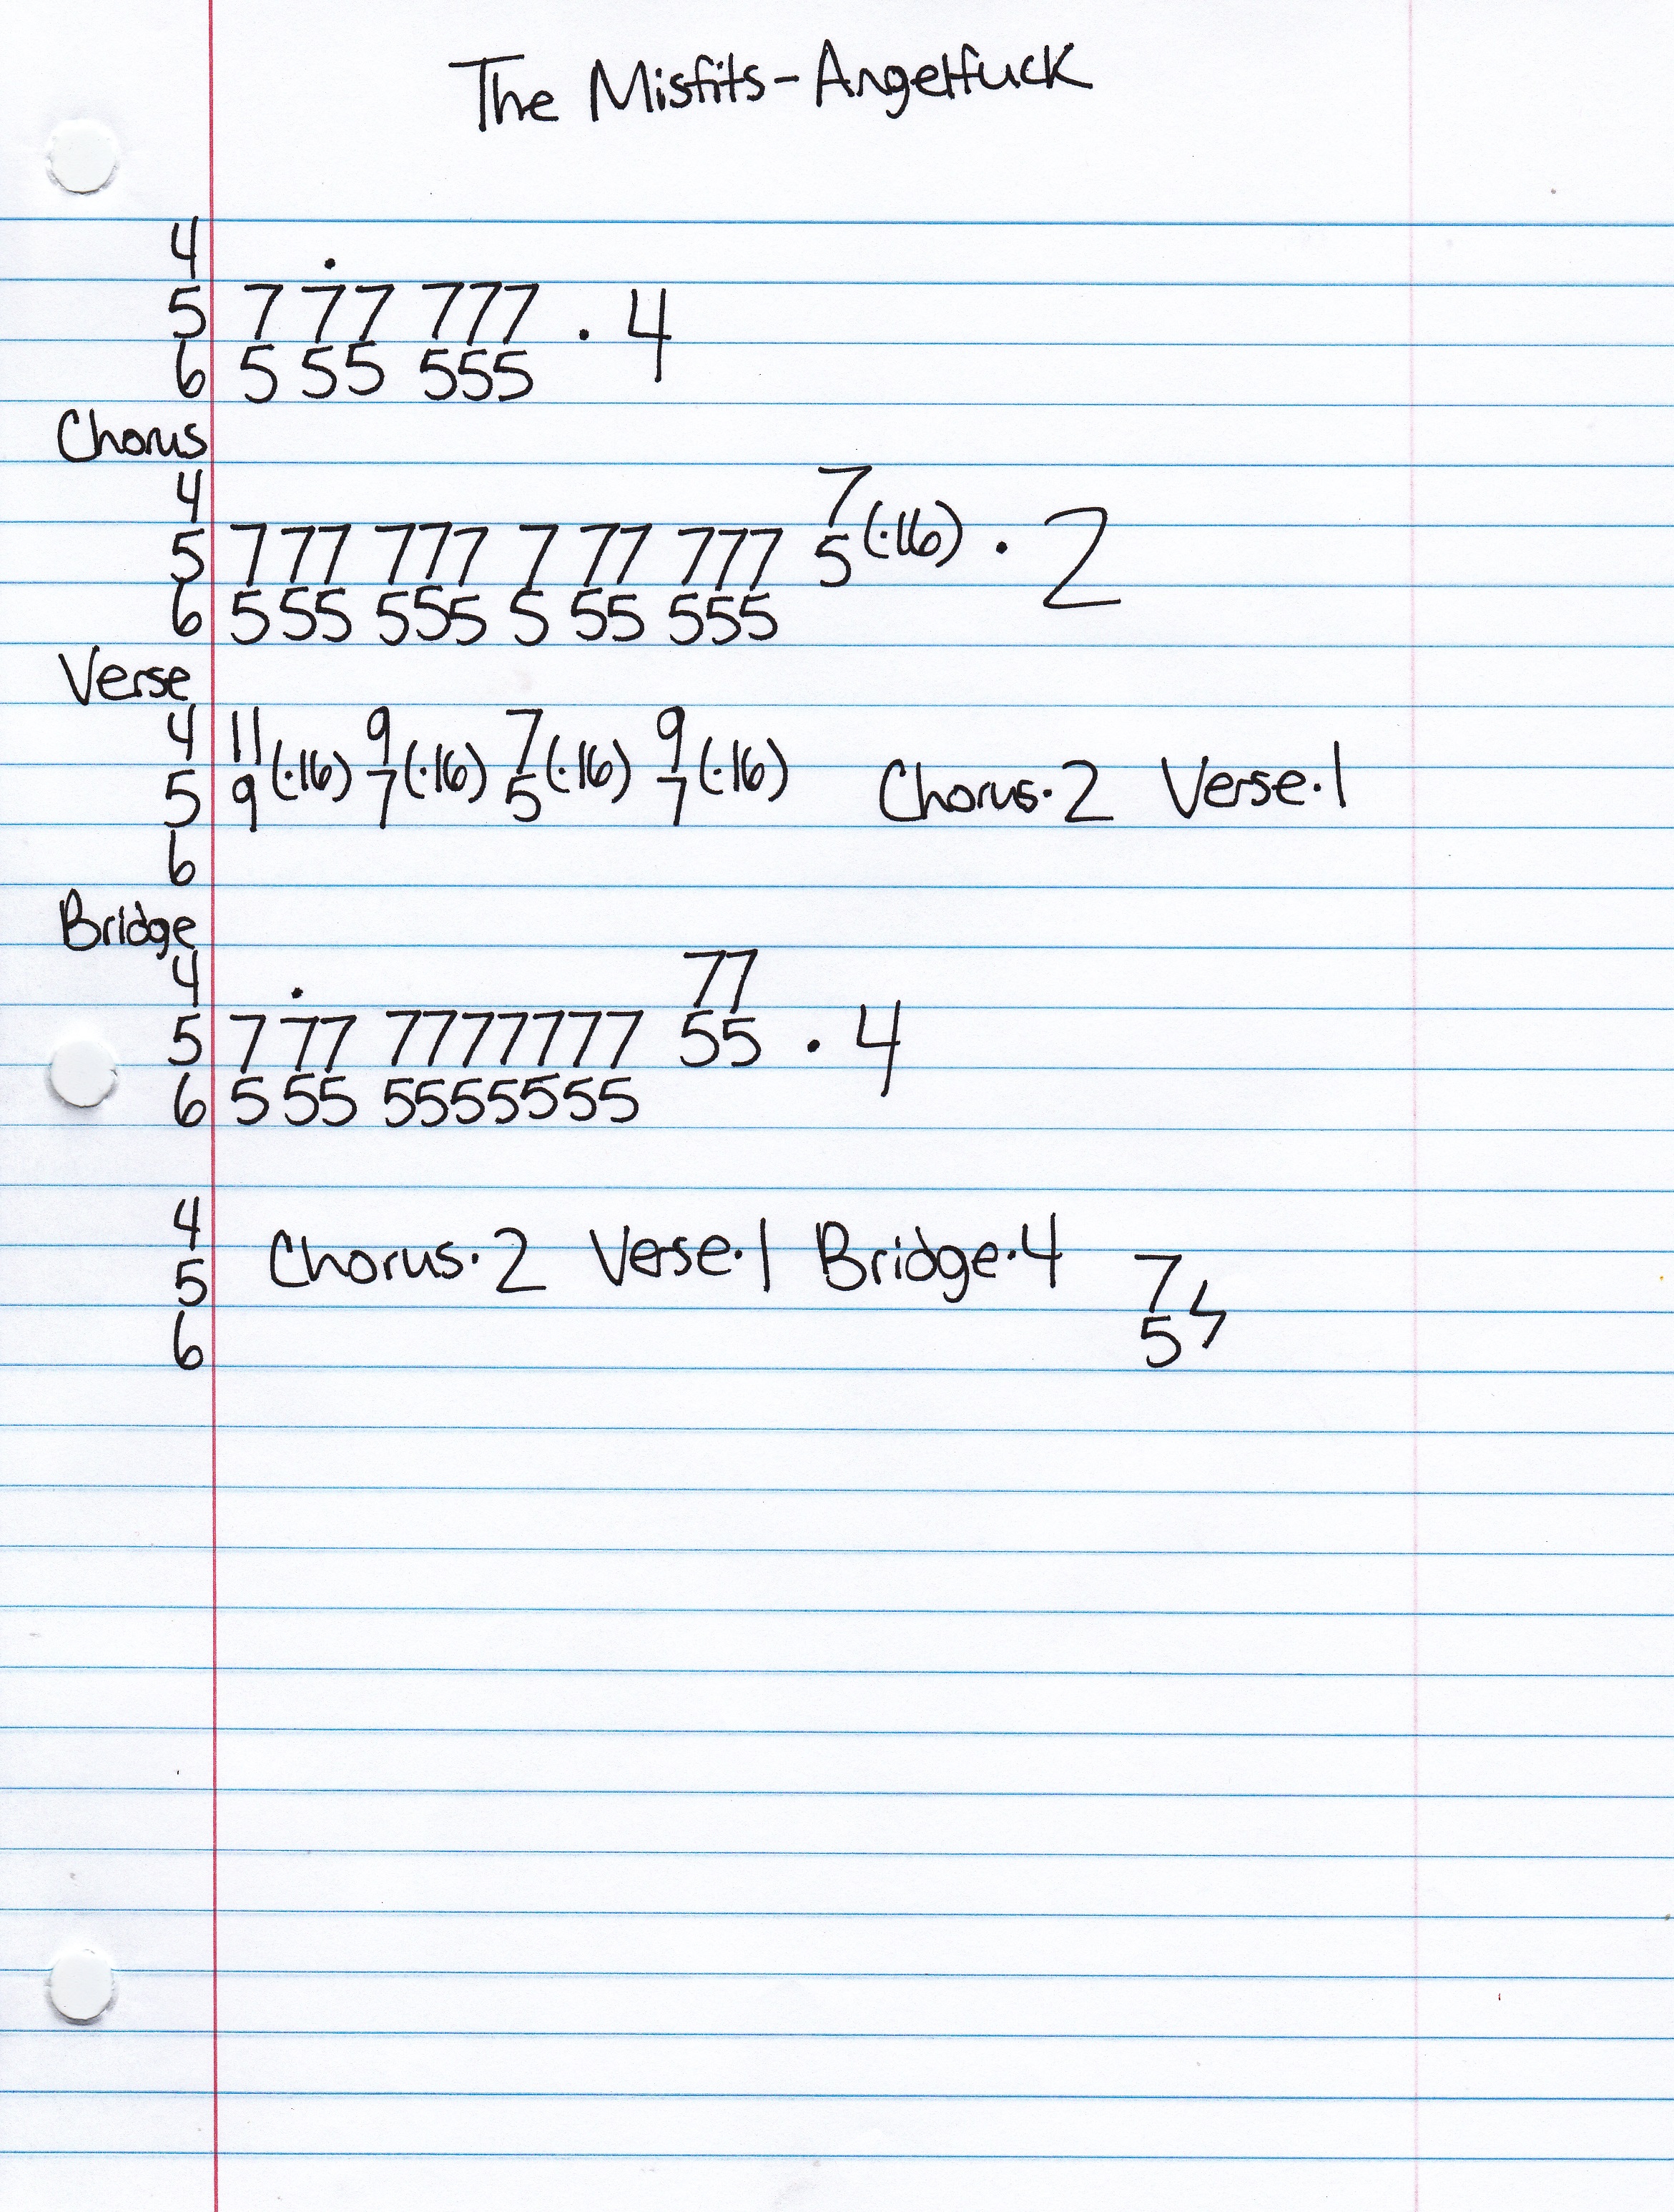 The Misfits-Angelfuck
4 .
5 7 77 777 . 4
6 5 55 555
Chorus
4 7
5 777 777 7 77 777 5(·16) . 2
6 555 555 5 55 555
Verse
4 11 9 7 9
5 9(·16) 7(·16) 5(·16) 7(·16) Chorus·2 Verse·1
6
Bridge
4 . 77
5 7 77 7777777 55 . 4
6 5 55 5555555
4
5 Chorus·2 Verse·1 Bridge·4 7
6 5